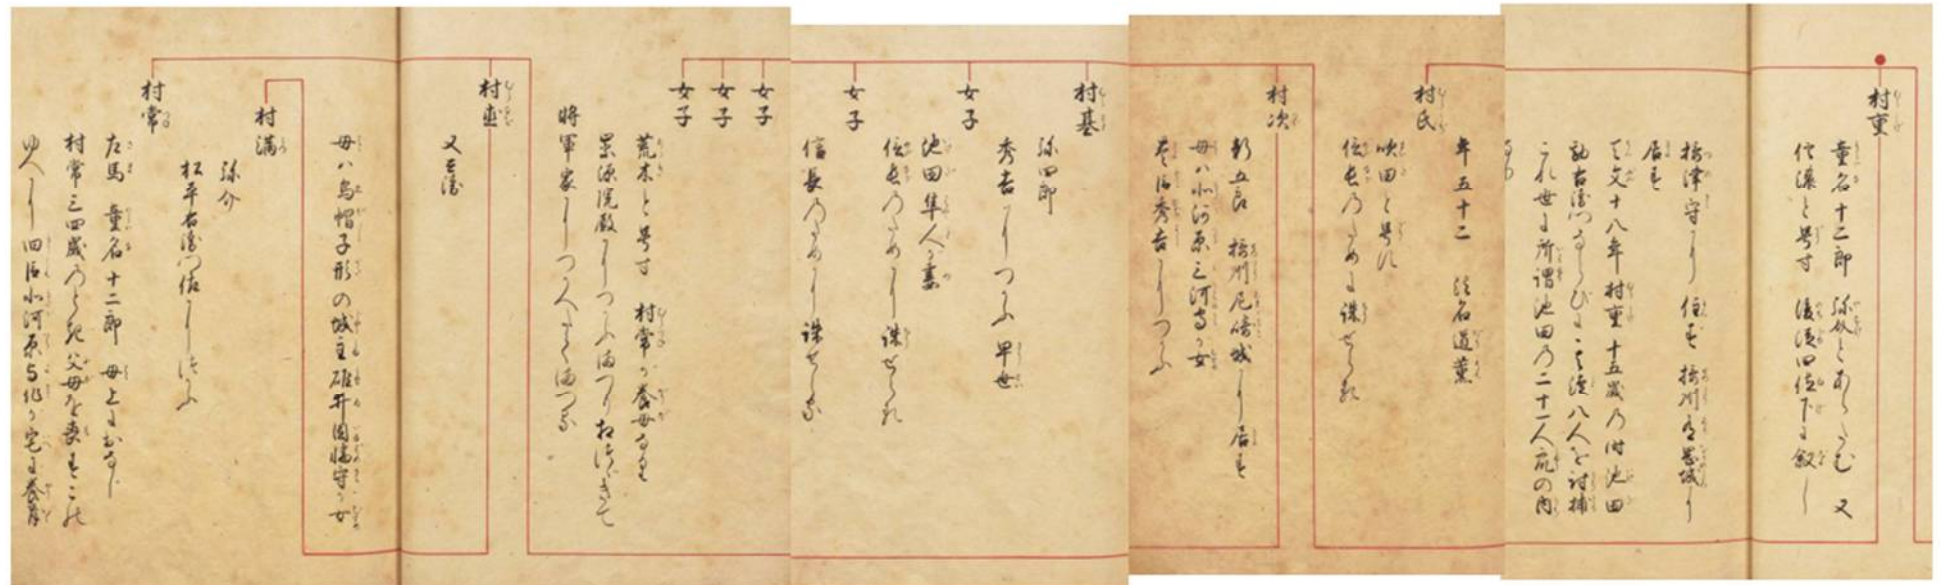 村重
童名十二郎 弥介とあらたむ 又
信濃と号す 後従四位下に叙し
摂津守
居す
天文十八年村重十五歳の時池田
八人を討捕
これ世に所謂池田の二十一人衆の内
年五十二 法名道薫
村氏
吹田と号す
信長のために誅せらる
村次
新五郎 摂州尼崎城に居す
母は北河原三河守が女
太閤秀吉につかふ
村基
弥四郎
秀吉につかふ 早世
女子
池田隼人が妻
信長のために誅せらる
女子
信長のために誅せらる
女子
女子
女子
荒木と号す 村常が養母なり
将軍家につかへたてまつる
村直
母は烏帽子形の城主碓井因幡守が女
村満
弥介
松平右衛門佐につかふ
村常
左馬 童名十二郎 母上におなじ
村常三四歳のとき父母を喪すこの
ゆへに旧臣北河原与作が宅に養育